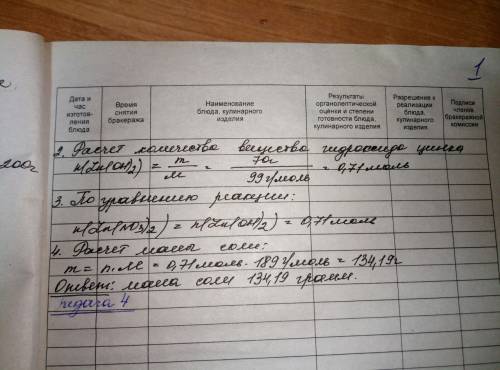 1
Дата и час изготов-ления блюда
Время снятия бракеража
Наименование блюда, кулинарного изделия
Результаты органолептической оценки и степени готовности блюда, кулинарного изделия
Разрешение к реализации блюда, кулинарного изделия
Подписи членов бракеражной комиссии
200г
2. Расчет количества вещества гидроксида цинка
n(Zn(OH)2) = m/M = 70г/99г/моль = 0,71 моль
3. По уравнению реакции:
n(Zn(NO3)2) = n(Zn(OH)2) = 0,71 моль
4. Расчет массы соли:
m = n·M = 0,71 моль · 189 г/моль = 134,19г
Ответ: масса соли 134,19 грамм.
Задача 4